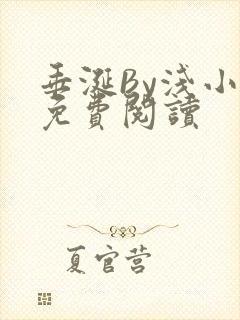 垂涎By淺小
免費閱讀
夏官营